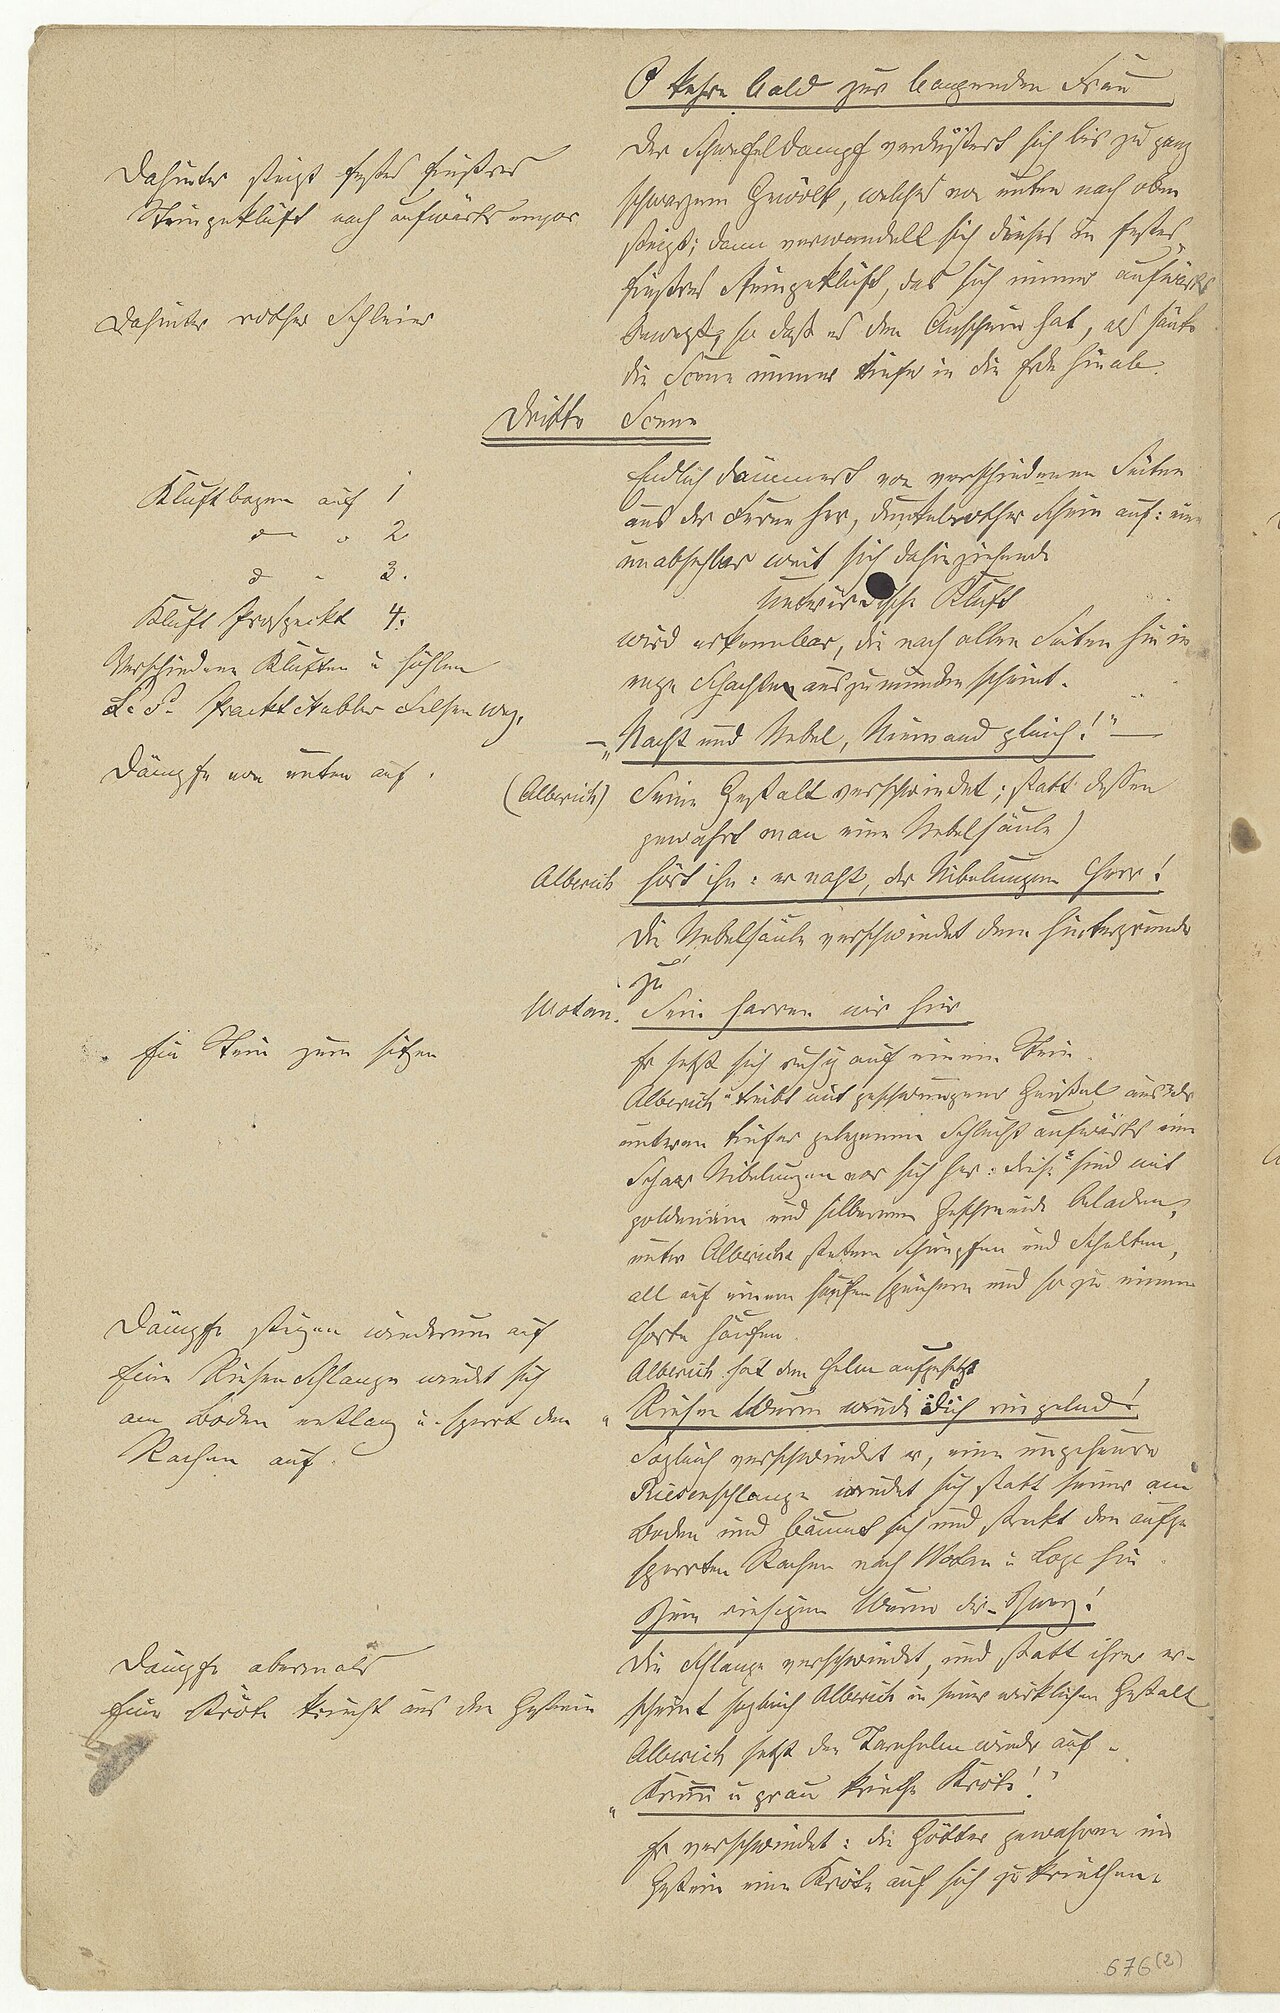 O kehre bald zur bangenden Frau
Der Schwefeldampf verdüstert sich bis zu ganz
schwarzem Gewölk, welches von unten nach oben
steigt; dann verwandelt sich dieses in festes,
finstres Steingeklüft, das sich immer aufwärts
bewegt, so daß es den Anschein hat, als sänke
die Scene immer tiefer in die Erde hinab.
Dahinter steigt festes finstres
Steingeklüft nach aufwärts empor
Dahinter rother Schleier
Dritte Scene
Endlich dämmert von verschiedenen Seiten
aus der Ferne her, dunkelrother Schein auf: eine
unabsehbar weit sich dahinziehende
Unterirdische Kluft
wird erkennbar, die nach allen Seiten hin in
enge Schachten auszumünden scheint.
Kluftbogen auf 1
do " 2
do " 3.
Kluft Prospeckt 4.
Verschiedene Kluften u Höhlen
L. S. Practicabler Felsenweg.
— „Nacht und Nebel, Niemand gleich!" —
Dämpfe von unten auf.
(Alberich) Seine Gestalt verschwindet; statt dessen
gewahrt man eine Nebelsäule)
Alberich hört ihn: er naht, der Nibelungen Herr!
Die Nebelsäule verschwindet dem Hintergrunde
zu
Wotan. Sein harren wir hier
Ein Stein zum sitzen
Er setzt sich ruhig auf einem Stein.
Alberich treibt mit geschwungener Geißel aus der
unteren tiefer gelegenen Schlucht aufwärts eine
Schaar Nibelungen vor sich her: diese sind mit
goldenem und silbernem Geschmeide beladen,
unter Alberichs stetem Schimpfen und Schelten,
all auf einen Haufen speichern und so zu einem
Horte häufen.
Alberich hat den Helm aufgesetzt
Dämpfe steigen wiederum auf
Eine Riesen Schlange windet sich
am Boden entlang u. sperrt den
Rachen auf.
„Riesen Wurm winde dich ringelnd!
Sogleich verschwindet er, eine ungeheure
Riesenschlange windet sich statt seiner am
Boden und bäumt sich und streckt den aufge
sperrten Rachen nach Wotan u Loge hin.
Zum riesigen Wurm der Zwerg!
Dämpfe abermals
Eine Kröte kriecht aus dem Gestein
Die Schlange verschwindet, und statt ihrer er-
scheint sogleich Alberich in seiner wirklichen Gestalt
Alberich setzt den Tarnhelm wieder auf.
„Krumm u grau krieche Kröte!"
Er verschwindet: die Götter gewahren im
Gestein eine Kröte auf sich zu kriechen.
676 (2)